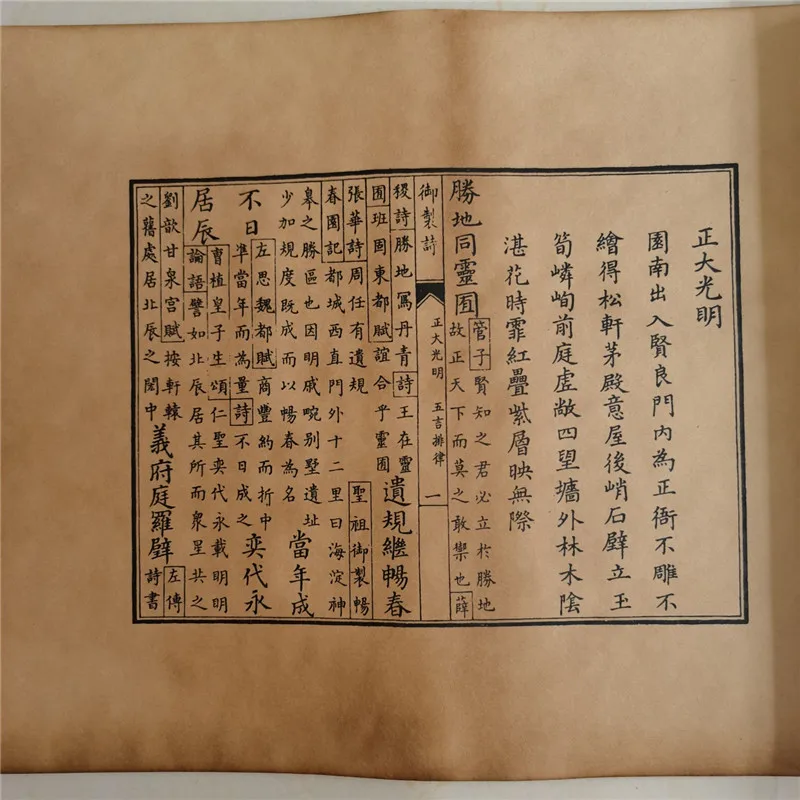 正大光明
園南出入賢良門內為正衙不雕不
繪得松軒茅殿意屋後峭石壁立玉
筍嶙峋前庭虛敞四望墻外林木陰
湛花時霏紅疊紫層映無際
勝地同靈囿
管子賢知之君必立於勝地
故正天下而莫之敢禦也薛
御製詩 正大光明 五言排律 一
稷詩勝地寫丹青詩王在靈
囿班固東都賦誼合乎靈囿
遺規繼暢春
張華詩周任有遺規 聖祖御製暢
春園記都城西直門外十二里曰海淀神
臯之勝區也因明戚畹别墅遺址
少加規度既成而以暢春為名
當年成
不日
左思魏都賦商豐約而折中
準當年而為量詩不日成之
奕代永
居辰
曹植皇子生頌仁聖奕代永載明明
論語譬如北辰居其所而衆星共之
劉歆甘泉宮賦按軒轅
之舊處居北辰之閎中
義府庭羅壁
左傳
詩書